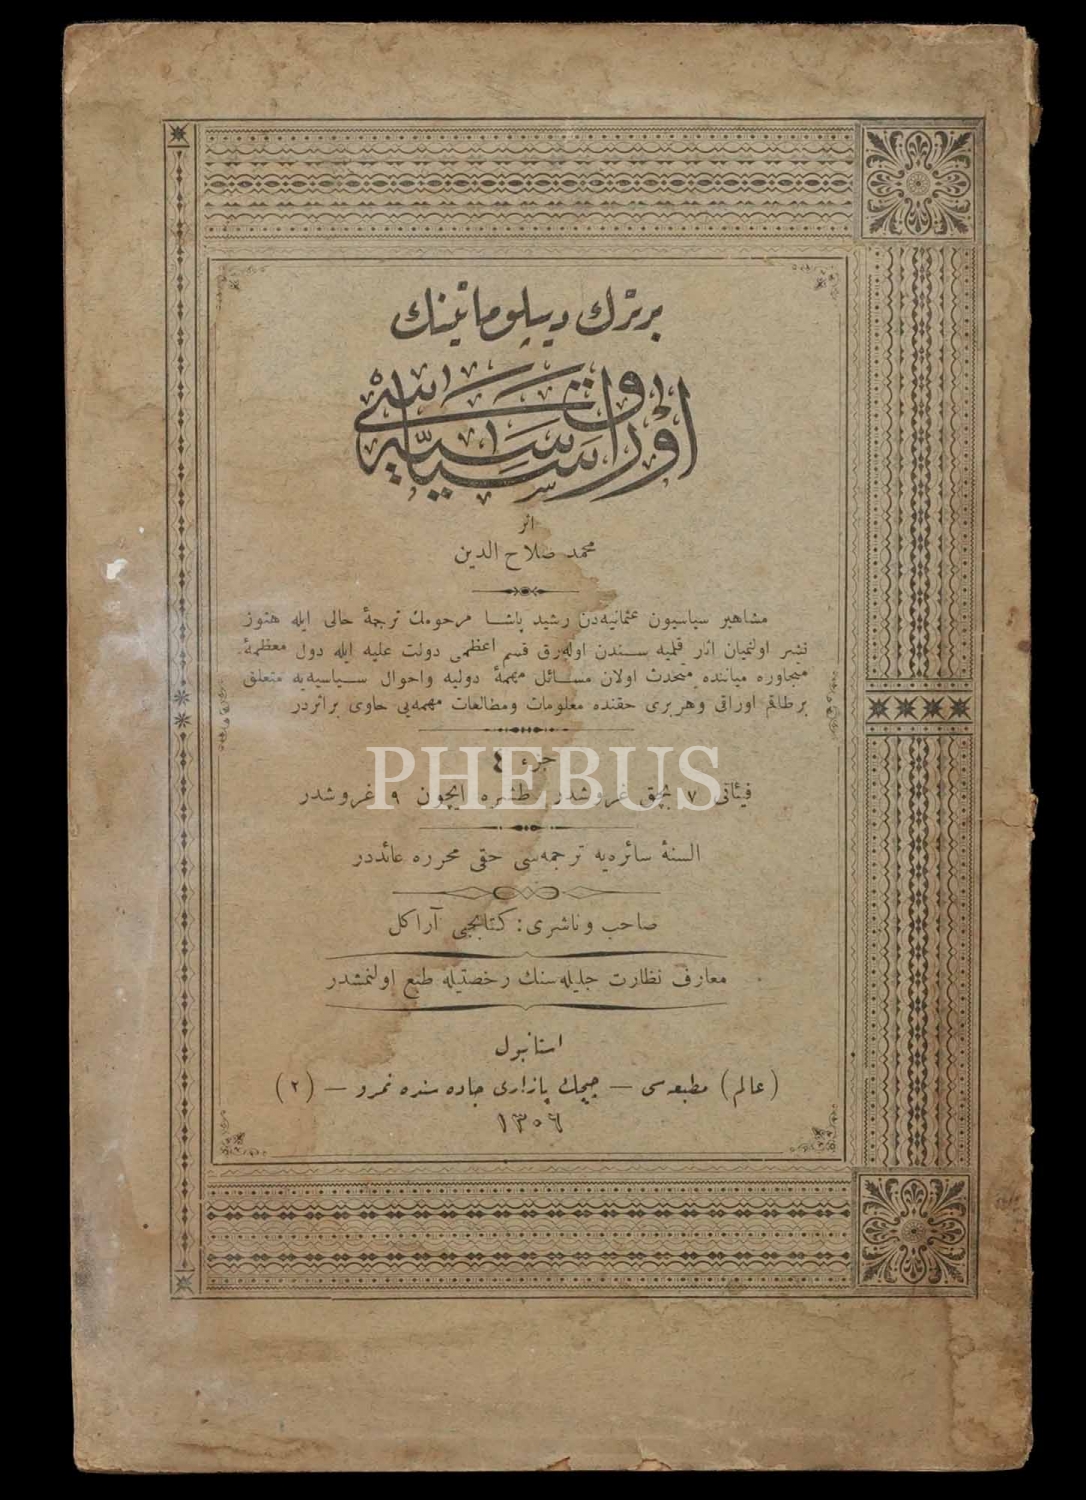 بر ترك ديپلوماتينك
اوراق سياسيه سى
اثر
محمد صلاح الدين
مشاهير سياسيون عثمانيه‌دن رشيد پاشا مرحومك ترجمهٔ حالى ايله هنوز
نشر اولنميان اثار قلميه سندن اوله‌رق قسم اعظمى دولت عليه ايله دول معظمهٔ
متجاوره ميانده متحدث اولان مسائل مهمهٔ دوليه واحوال سياسيه‌يه متعلق
بر طاقم اوراقى وهر برى حقنده معلومات ومطالعات مهمه‌يى حاوى بر اثردر
جزء ٤
PHEBUS
فيئاتى ٧ بچق غروشدر طشره ايچون ٩ غروشدر
السنهٔ سائره‌يه ترجمه‌سى حقى محرره عائددر
صاحب وناشرى: كتابجى آراكل
معارف نظارت جليله‌سنك رخصتيله طبع اولنمشدر
استانبول
(عالم) مطبعه‌سى — چيچك پازارى جاده سنده نمرو — (٢)
١٣٠٦